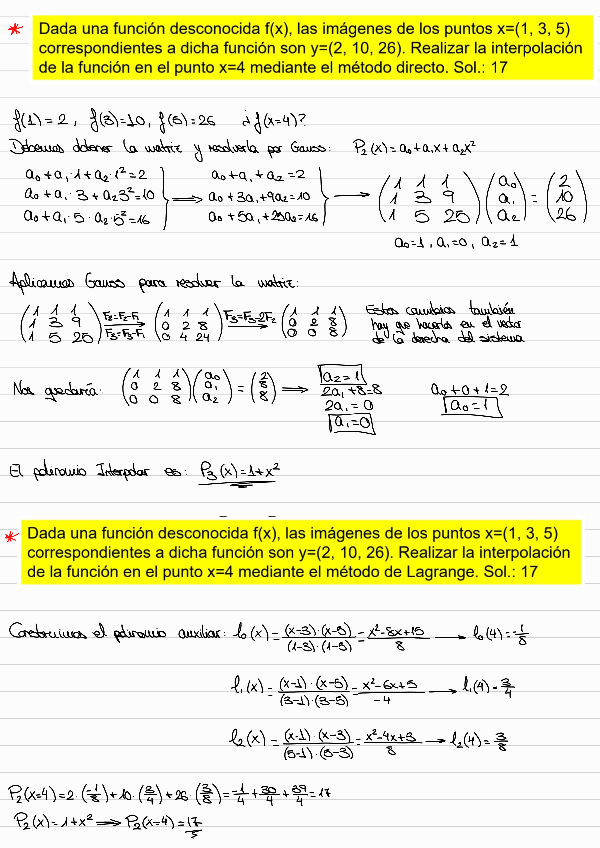 * Dada una función desconocida f(x), las imágenes de los puntos x=(1, 3, 5)
correspondientes a dicha función son y=(2, 10, 26). Realizar la interpolación
de la función en el punto x=4 mediante el método directo. Sol.: 17
f(1)=2, f(3)=10, f(5)=26 ¿f(x=4)?
Debemos obtener la matriz y resolverla por Gauss: P₂(x)=a₀+a₁x+a₂x²
a₀+a₁·1+a₂·1²=2
a₀+a₁·3+a₂3²=10
a₀+a₁·5·a₂·5²=16
⟹ a₀+a₁+a₂=2
a₀+3a₁+9a₂=10
a₀+5a₁+25a₂=16
⟶ (1 1 1; 1 3 9; 1 5 25)(a₀; a₁; a₂)=(2; 10; 26)
a₀=1, a₁=0, a₂=1
Aplicamos Gauss para resolver la matriz:
(1 1 1; 1 3 9; 1 5 25) F₂=F₂-F₁ F₃=F₃-F₁ ⟶ (1 1 1; 0 2 8; 0 4 24) F₃=F₃-2F₂ ⟶ (1 1 1; 0 2 8; 0 0 8)
Estos cambios también
hay que hacerlos en el vector
de la derecha del sistema
Nos quedaría: (1 1 1; 0 2 8; 0 0 8)(a₀; a₁; a₂)=(2; 8; 8) ⟹
a₂=1
2a₁+8=8
2a₁=0
a₁=0
a₀+0+1=2
a₀=1
El polinomio Interpolar es: P₃(x)=1+x²
* Dada una función desconocida f(x), las imágenes de los puntos x=(1, 3, 5)
correspondientes a dicha función son y=(2, 10, 26). Realizar la interpolación
de la función en el punto x=4 mediante el método de Lagrange. Sol.: 17
Construimos el polinomio auxiliar: l₀(x)=(x-3)·(x-5)/(1-3)·(1-5)=x²-8x+15/8 ⟶ l₀(4)=-1/8
l₁(x)=(x-1)·(x-5)/(3-1)·(3-5)=x²-6x+5/-4 ⟶ l₁(4)=3/4
l₂(x)=(x-1)·(x-3)/(5-1)·(5-3)=x²-4x+3/8 ⟶ l₂(4)=3/8
P₂(x=4)=2·(-1/8)+10·(3/4)+26·(3/8)=-1/4+30/4+39/4=17
P₂(x)=1+x² ⟹ P₂(x=4)=17